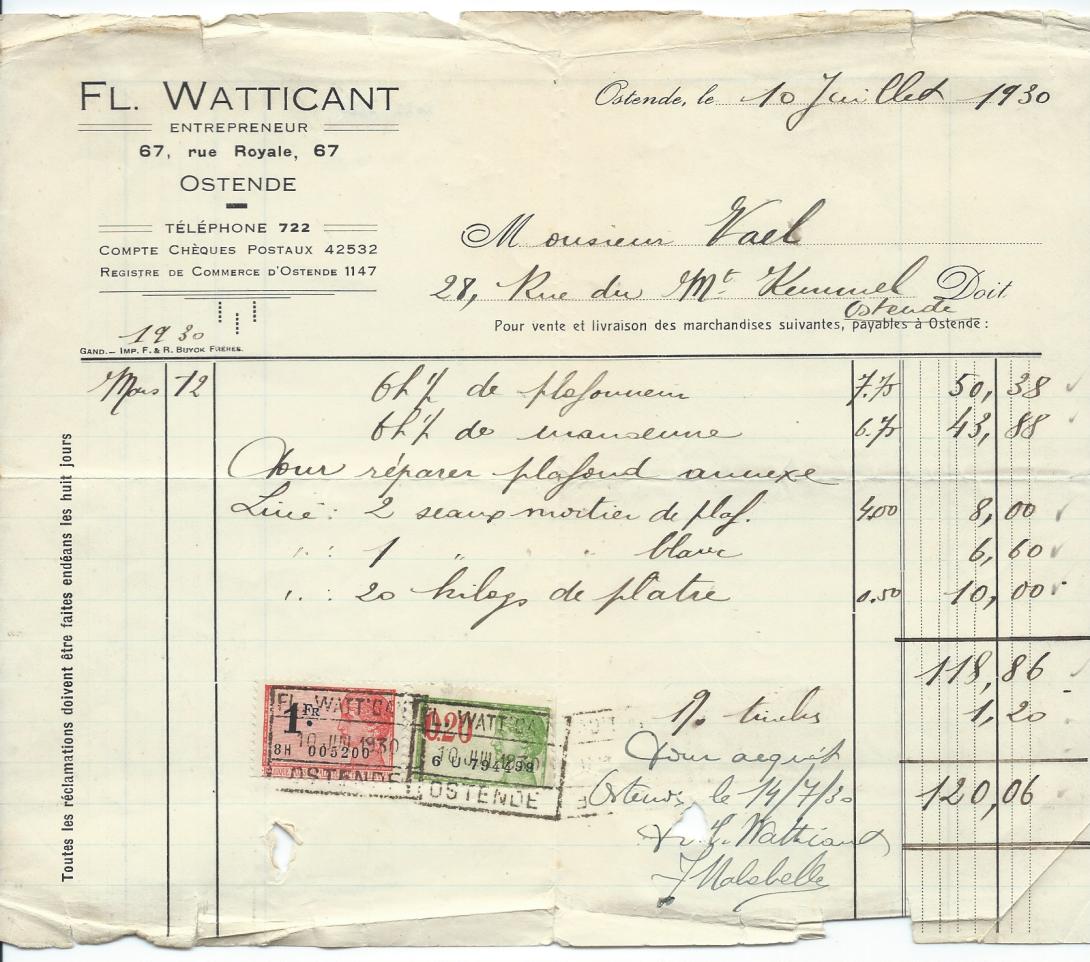 FL. WATTICANT
ENTREPRENEUR
67, rue Royale, 67
OSTENDE
TÉLÉPHONE 722
COMPTE CHÈQUES POSTAUX 42532
REGISTRE DE COMMERCE D'OSTENDE 1147
Ostende, le 10 Juillet 1930
Monsieur Vael
28, Rue du Mt Kemmel Doit
Ostende
Pour vente et livraison des marchandises suivantes, payables à Ostende :
1930
GAND. — IMP. F. & R. BUYCK FRÈRES.
Mars 12 6h ½ de plafonneur 7.75 50,38
6h ½ de manœuvre 6.75 43,88
Pour réparer plafond annexe
Livré : 2 seaux mortier de plaf. 4.00 8,00
" : 1 " " blanc 6,60
" : 20 kilogs de plâtre 0.50 10,00
118,86
timbres 1,20
Pour acquit
Ostende le 14/7/30 120,06
Watticant
1 FR
8H 005200
FL. WATTICANT
10 JUIL 1930
OSTENDE
0.20
6 U 794499
FL. WATTICANT
10 JUIL 1930
OSTENDE
Toutes les réclamations doivent être faites endéans les huit jours